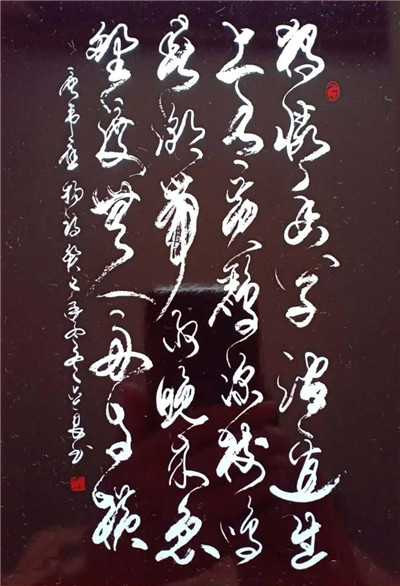 獨憐幽草澗邊生
上有黃鸝深樹鳴
春潮帶雨晚來急
野渡無人舟自橫
唐韋應物詩癸巳年